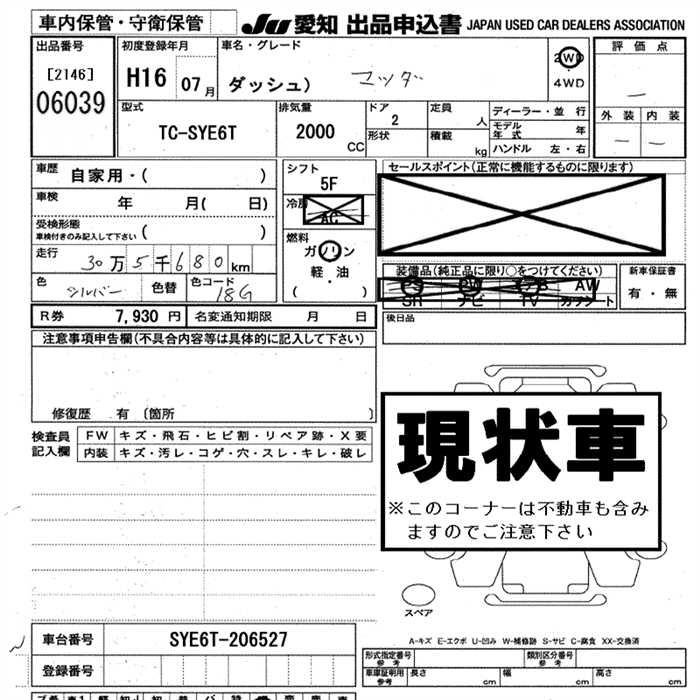 車内保管・守衛保管 JU 愛知 出品申込書 JAPAN USED CAR DEALERS ASSOCIATION
出品番号 初度登録年月 車名・グレード 2WD 評価点
[2146] H16 07月 ダッシュ) マツダ 4WD －
06039 型式 排気量 ドア 定員 ディーラー・並行 外装 内装
TC-SYE6T 2000 CC 2 人 モデル年式 年 － －
形状 積載 kg ハンドル 左・右
車歴 自家用・( ) シフト 5F セールスポイント(正常に機能するものに限ります)
車検 年 月( 日) 冷房 AC
受検形態 ( )
車検付きのみ記入して下さい
燃料 ガソリン
走行 30万5千680km 軽・油 装備品(純正品に限り○をつけてください) 新車保証書
色 シルバー 色替 色コード 18G ( ) PS PW AW 有・無
SR ナビ TV カセット
R券 7,930円 名変通知期限 月 日 後日品
注意事項申告欄(不具合内容等は具体的に記入して下さい)
修復歴 有 〔箇所 〕
検査員 FW キズ・飛石・ヒビ割・リペア跡・X要
記入欄 内装 キズ・汚レ・コゲ・穴・スレ・キレ・破レ
現状車
※このコーナーは不動車も含み
ますのでご注意下さい
スペア
A-キズ E-エクボ U-凹み W-補修跡 S-サビ C-腐食 XX-交換済
車台番号 SYE6T-206527 形式指定番号 参考 類別区分番号 参考
登録番号 車庫証明用 参考 長さ cm 幅 cm 高さ cm